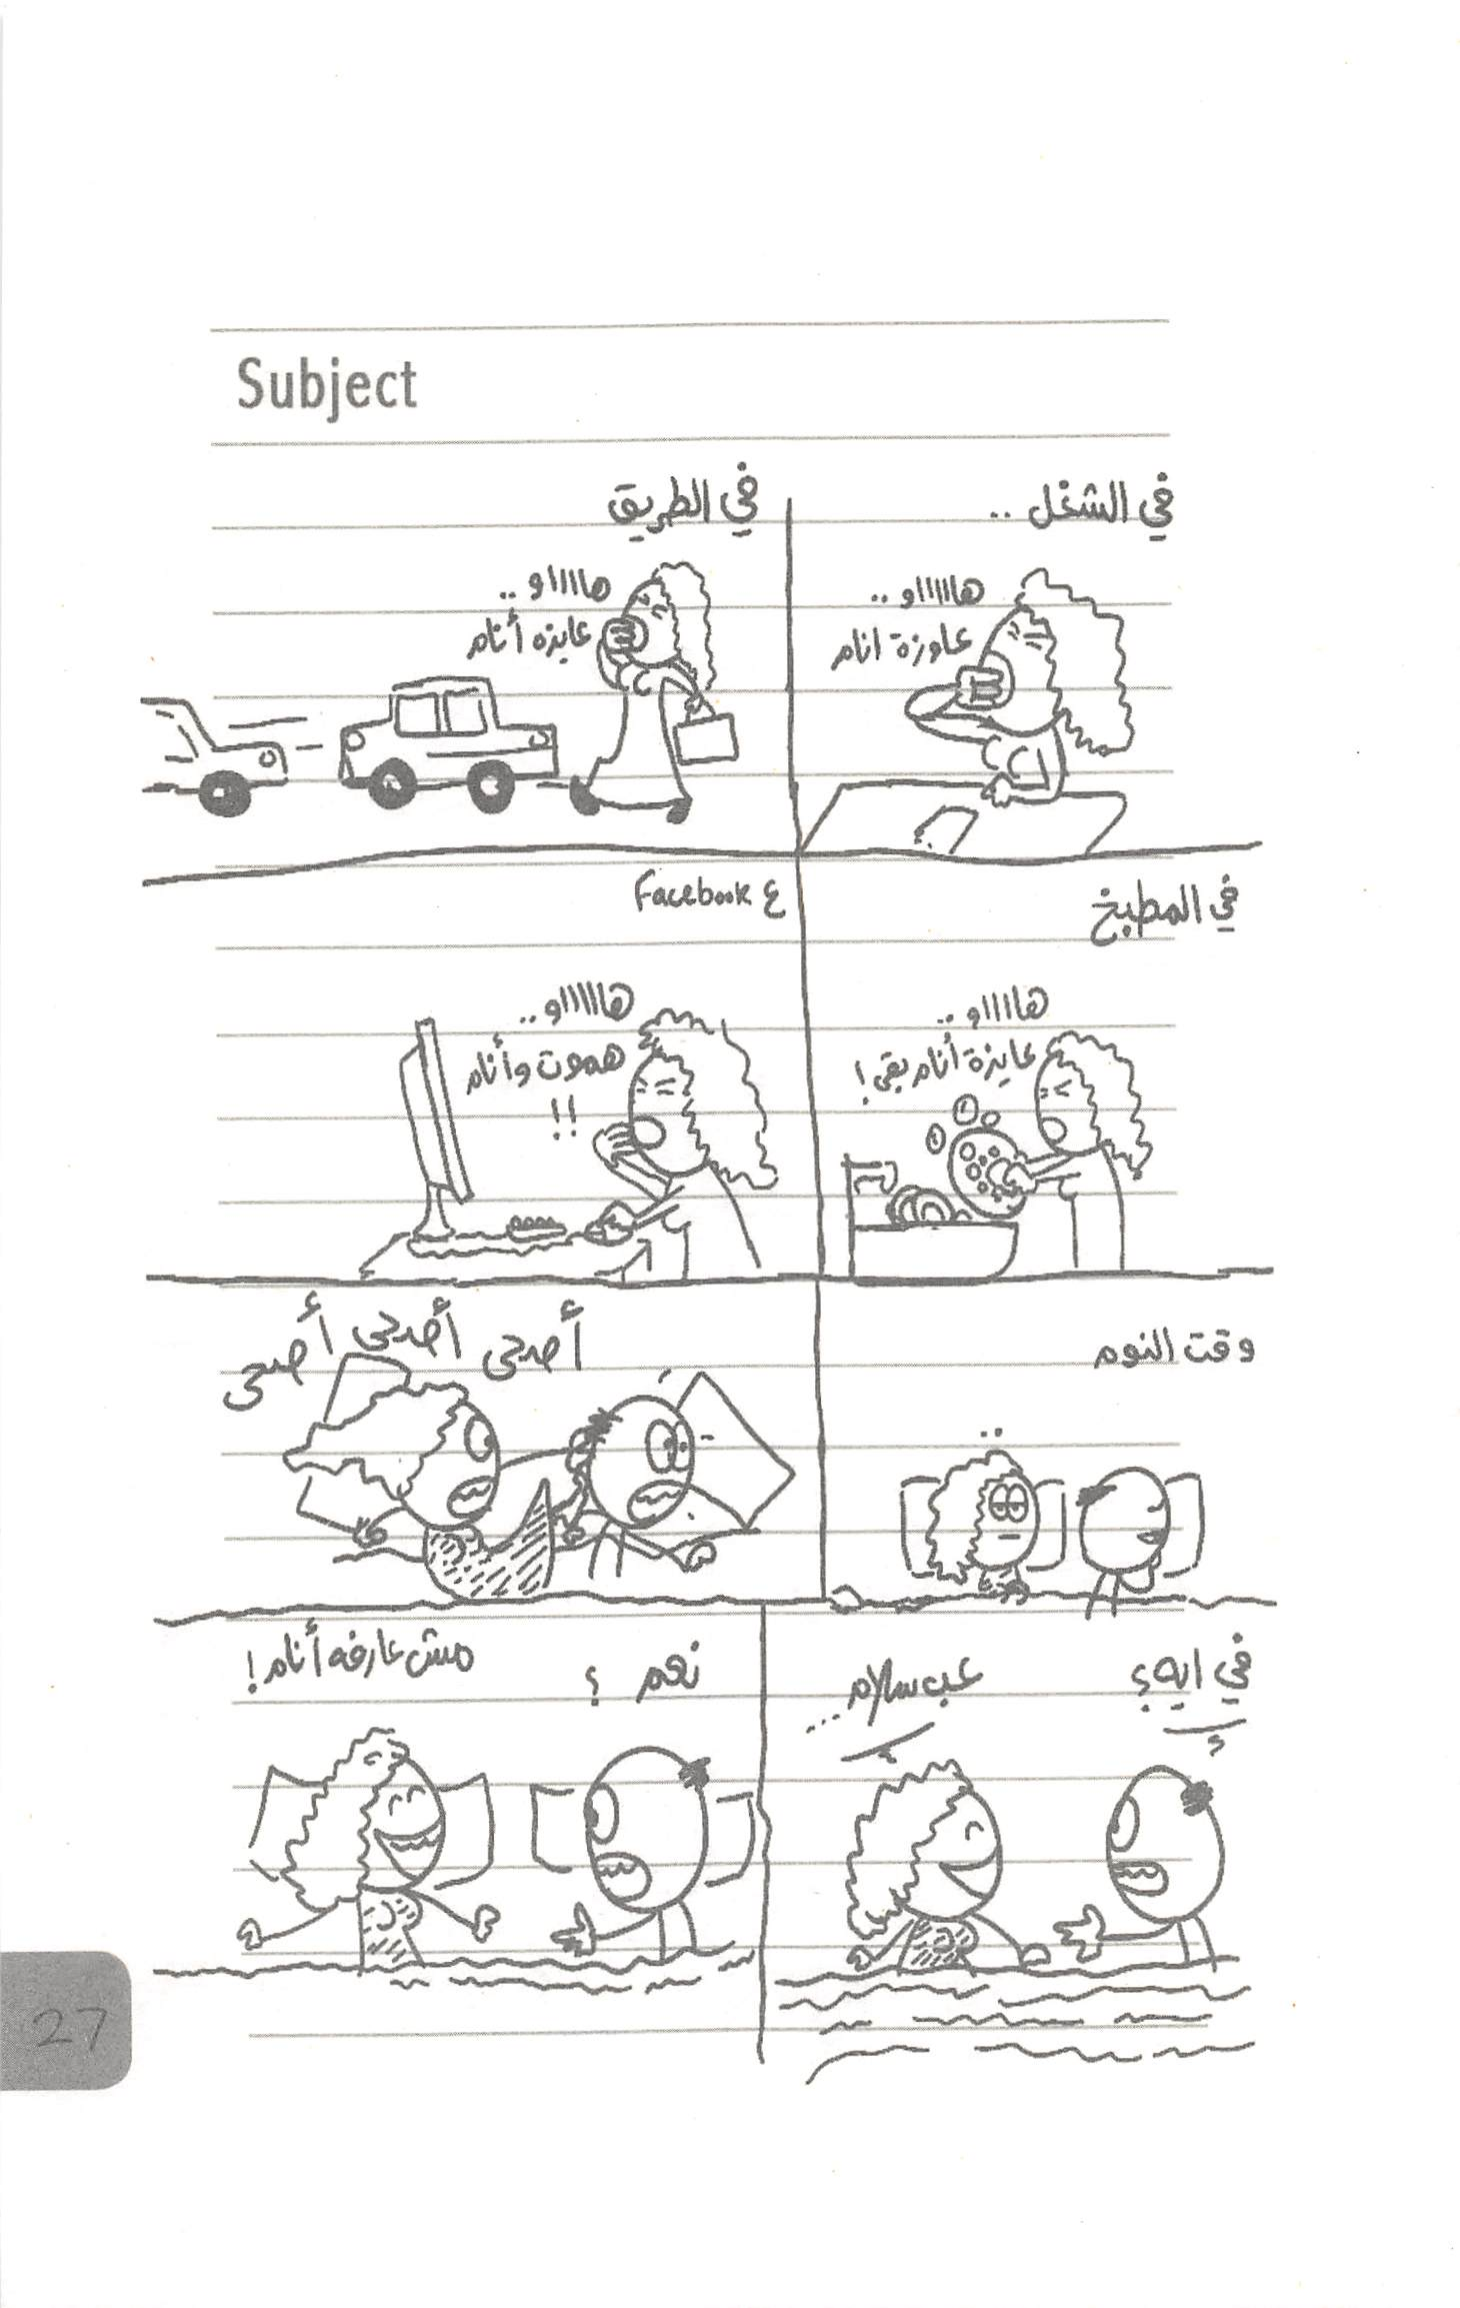 Subject
في الشغل ..
هااااااو ..
عاوزة انام
في الطريق
هاااااو ..
عايزه أنام
في المطبخ
هاااااو ..
عايزة أنام بقى !
ع Facebook
هااااااو ..
هموت وأنام
!!
وقت النوم
..
أصحى أصحى أصحى
في ايه ؟
عبسلام ...
نعم ؟
مش عارفه أنام !
27